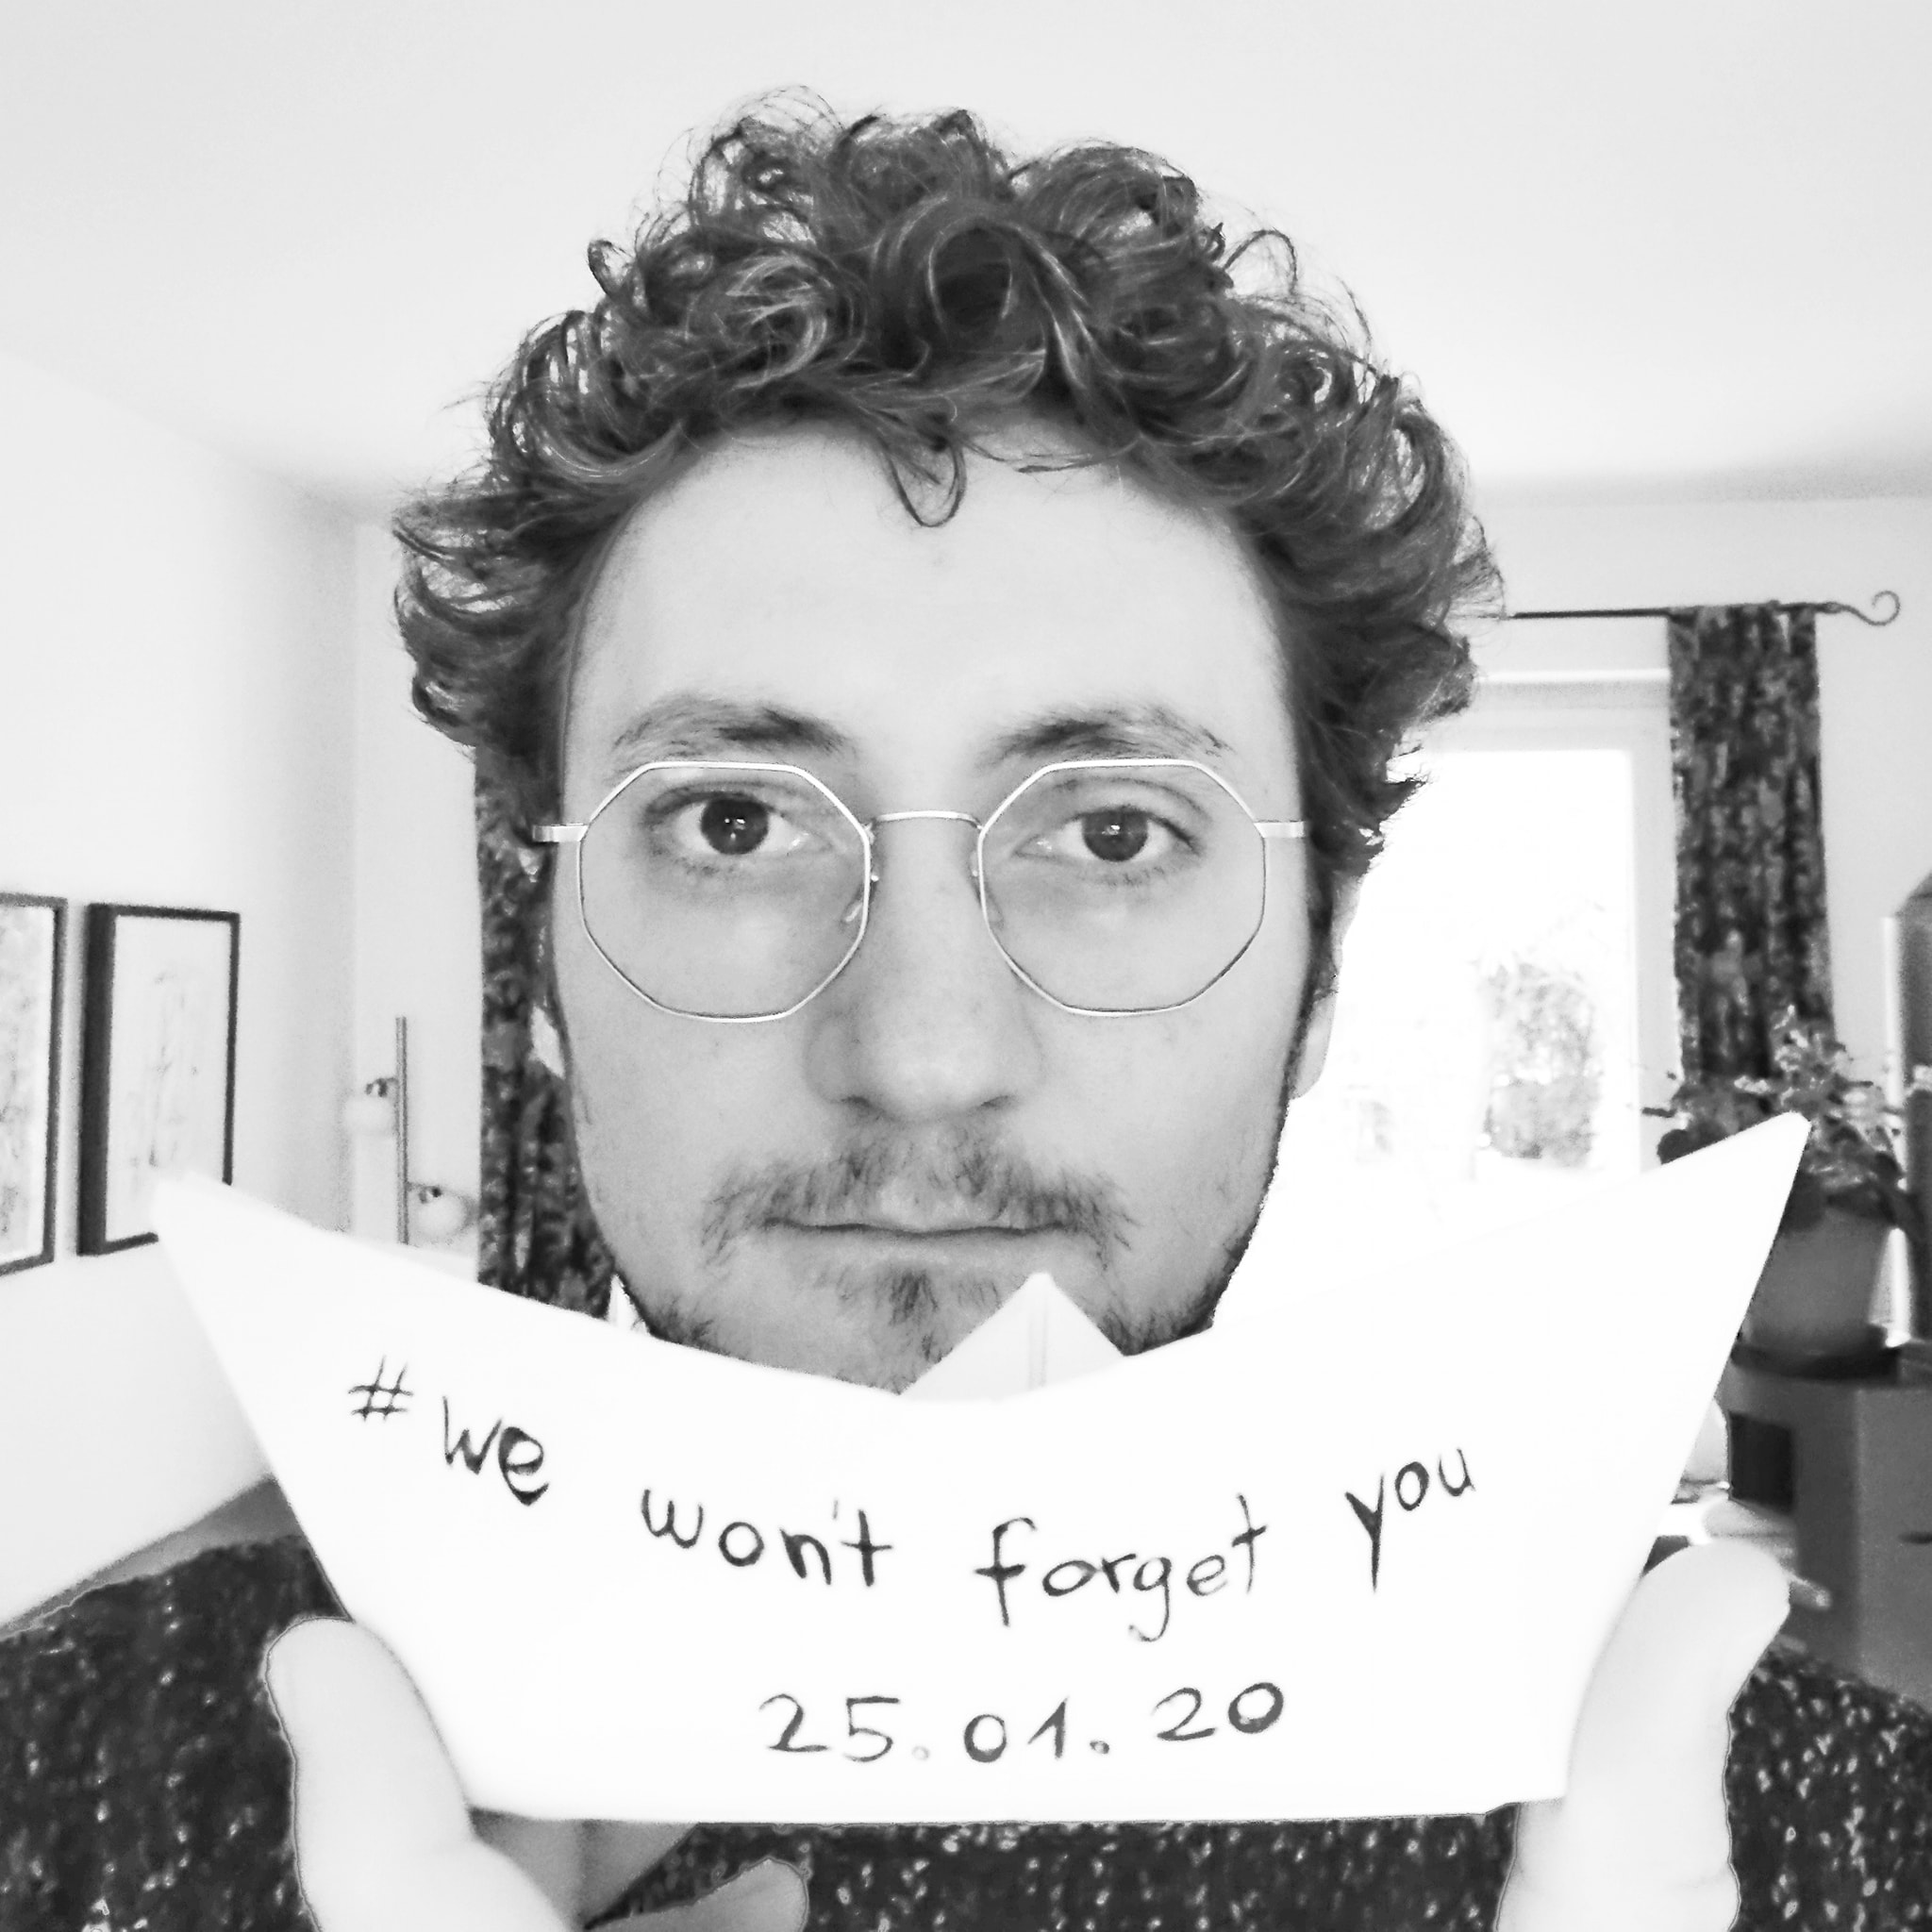 #we won't forget you
25.01.20